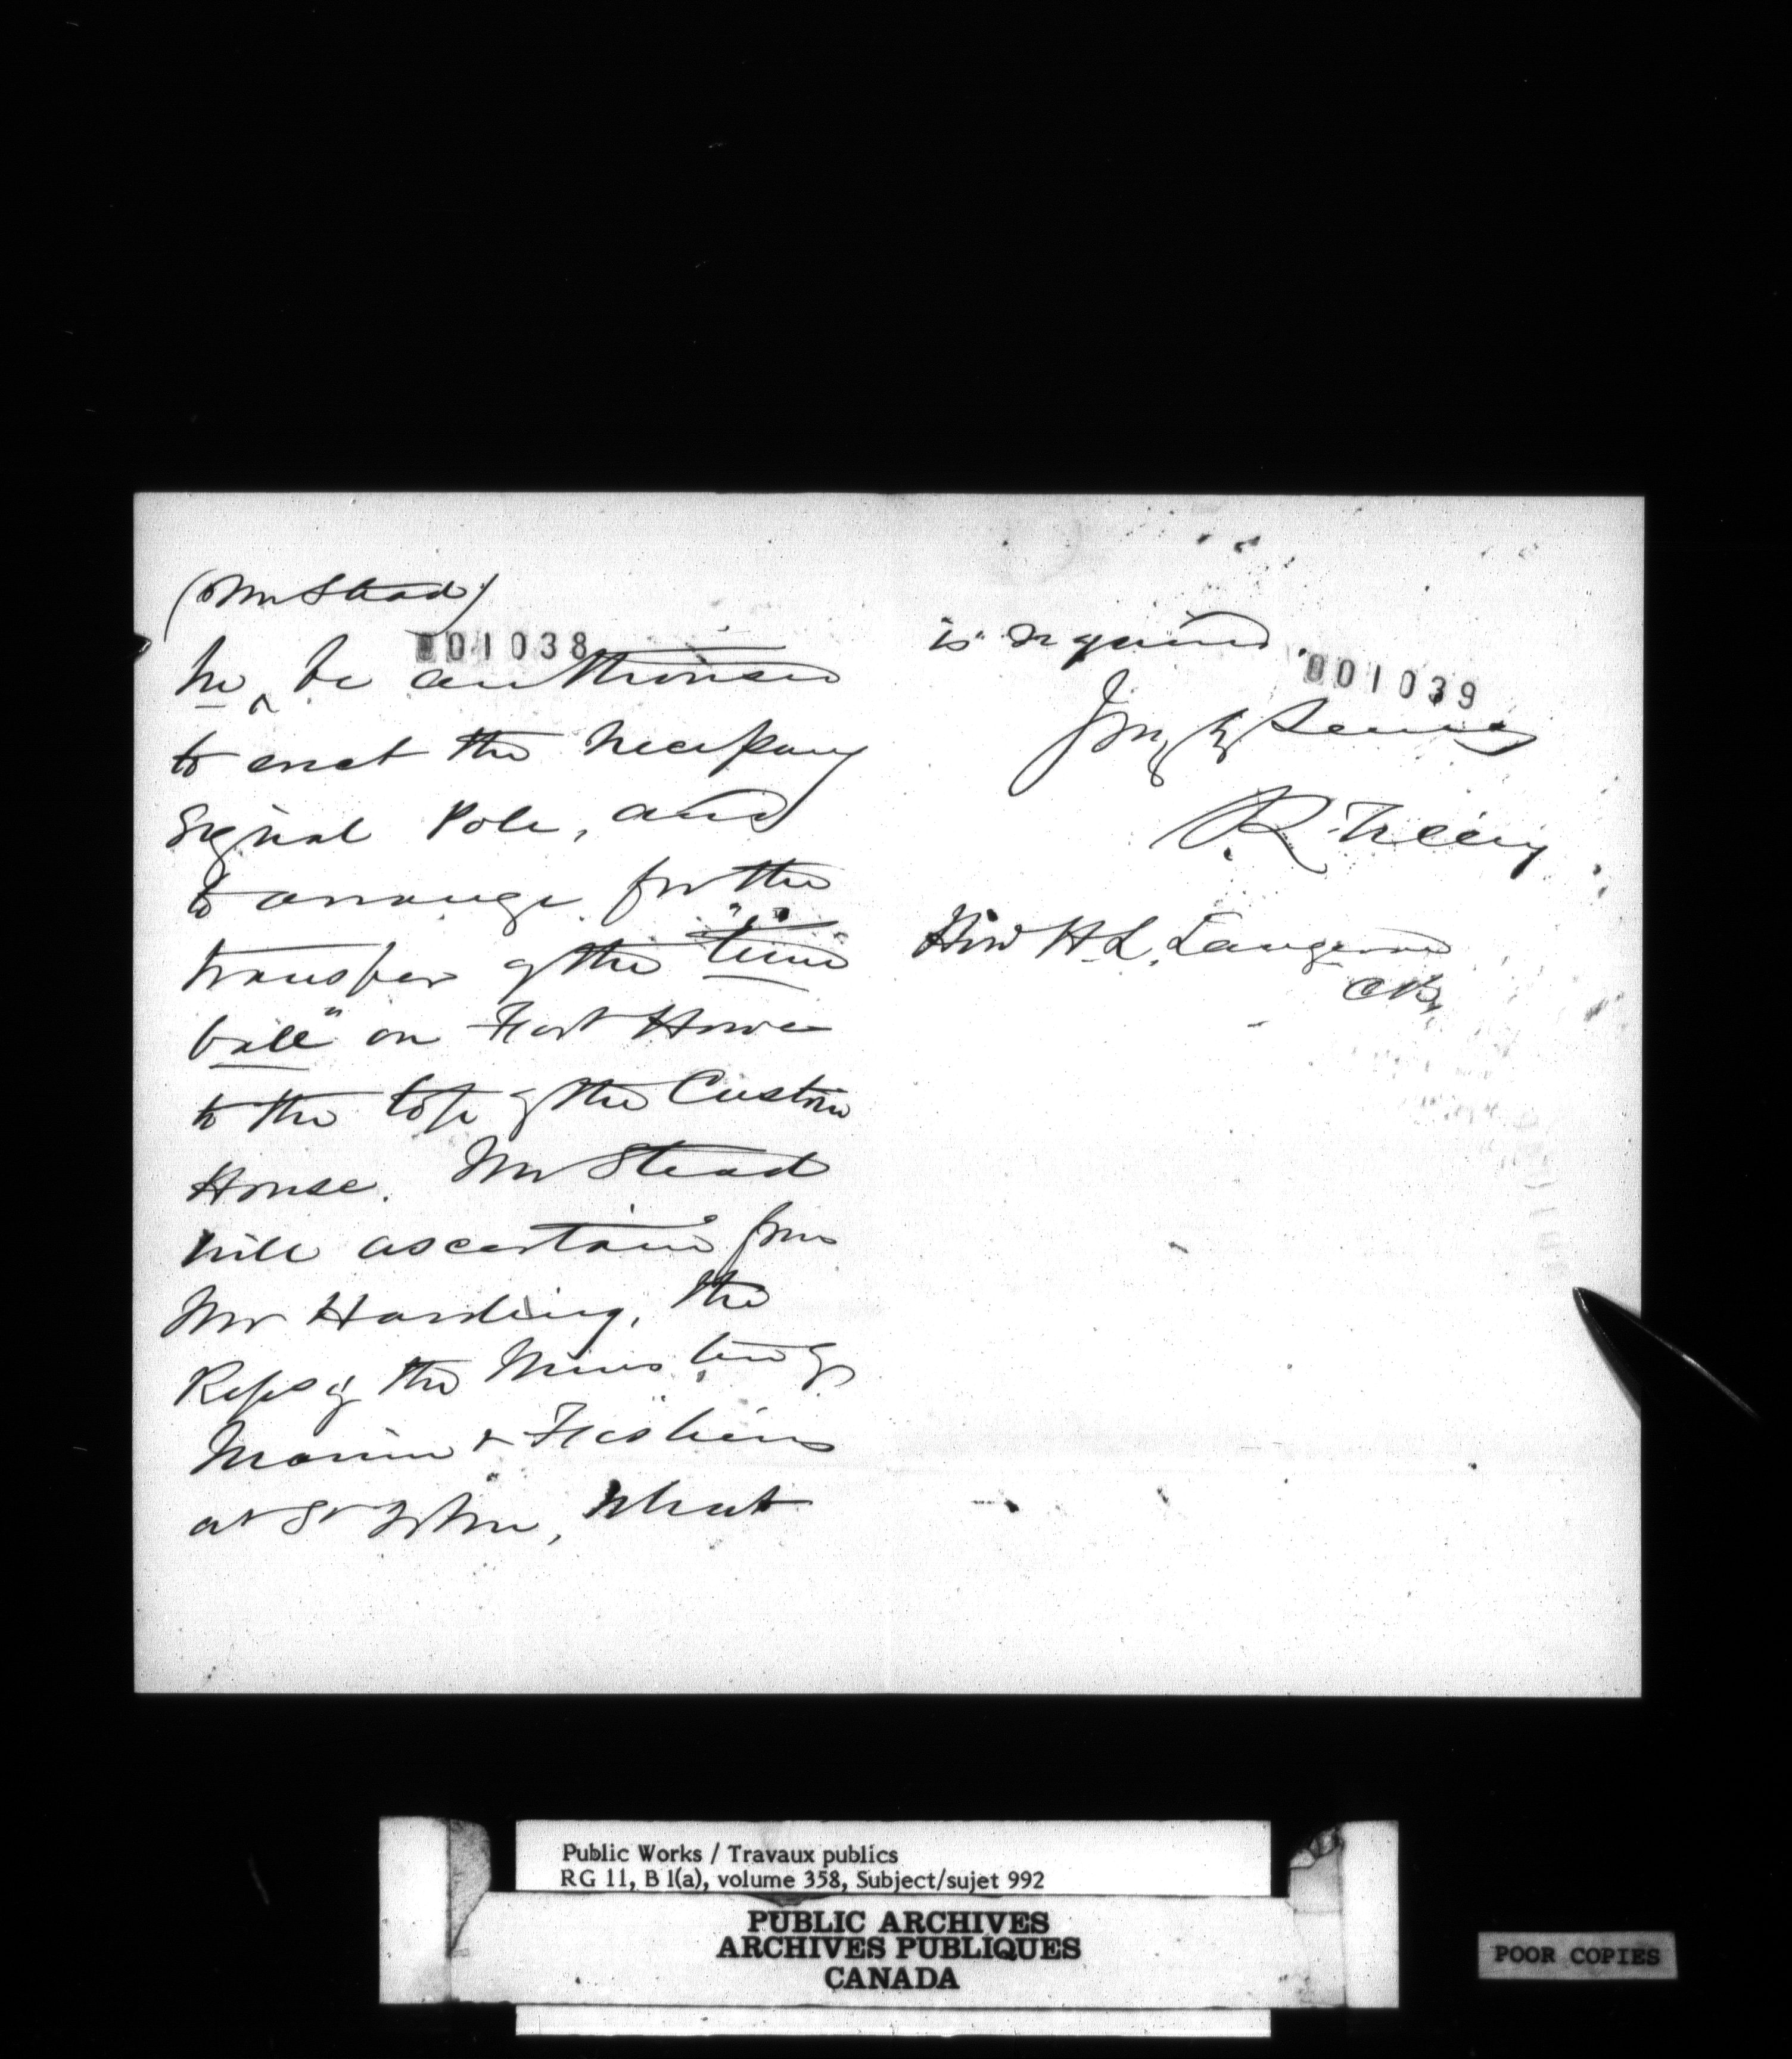 (Mr Stead)
001038
he ^ be authorised
to erect the necessary
Signal Pole, and
to arrange for the
transfer of the "time
ball" on Fort Howe
to the top of the Custom
House. Mr Stead
will ascertain from
Mr Harding, the
Repve of the Minister of
Marine & Fisheries
at St John, What
is required.
001039
Jno. W.
R.
Hon H. L. Langevin
CB,
Public Works / Travaux publics
RG 11, B 1(a), volume 358, Subject/sujet 992
PUBLIC ARCHIVES
ARCHIVES PUBLIQUES
CANADA
POOR COPIES